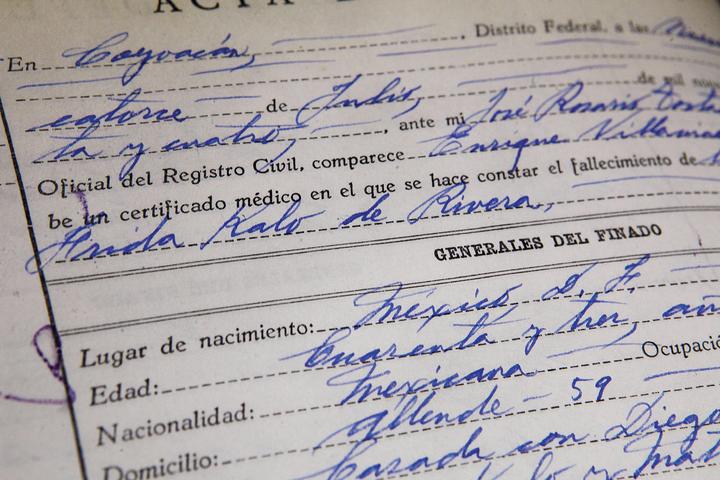 ACTA
En Coyoacán, , Distrito Federal, a las
catorce de Julio, de mil
ta y cuatro, , ante mi José Rosario
Oficial del Registro Civil, comparece Enrique
be un certificado médico en el que se hace constar el fallecimiento de
Frida Kalo de Rivera,
GENERALES DEL FINADO
Lugar de nacimiento: México, D. F.
Edad: Cuarenta y tres,
Nacionalidad: Mexicana Ocupació
Domicilio: Allende - 59
Casada con Diego
y